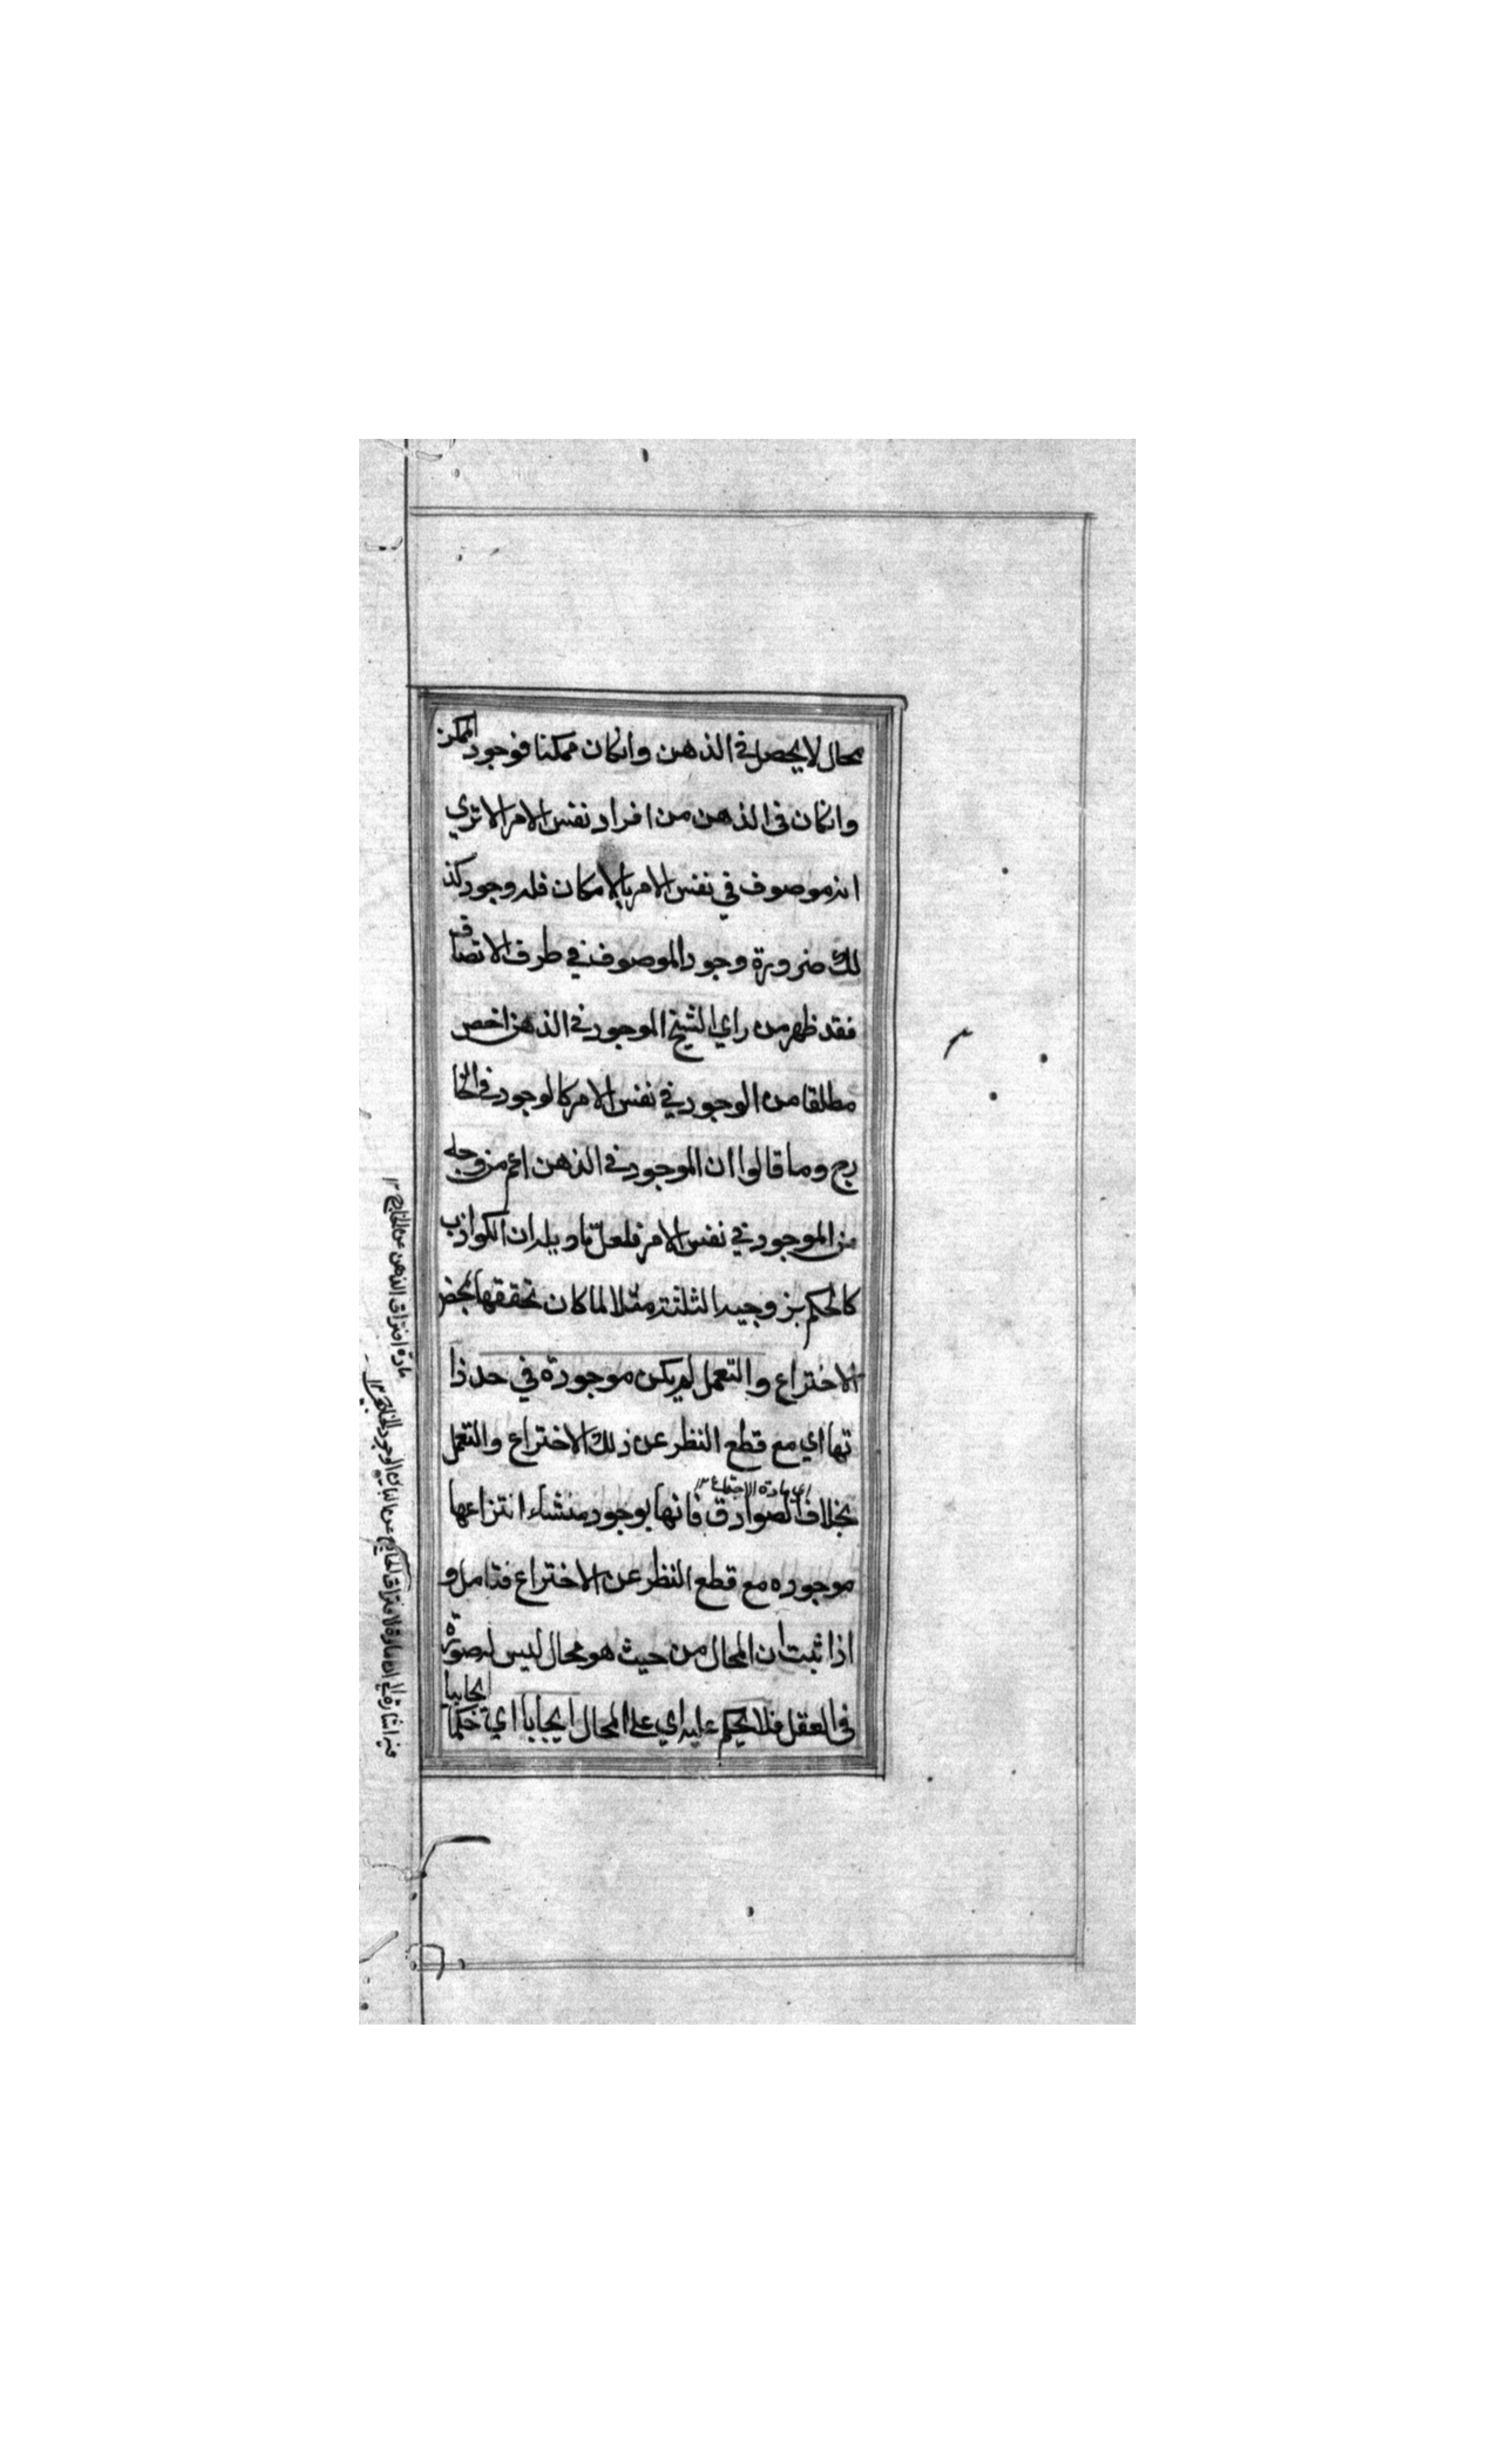 محال لا يحصل في الذهن وانكان ممكنا فوجود الممكن
وانكان في الذهن من افراد نفس الامر الا تري
انه موصوف في نفس الامر بالامكان فله وجود كذ
لك ضرورة وجود الموصوف في ظرف الاتصاف
فقد ظهر من راي الشيخ الموجود في الذهن اخص
مطلقا من الوجود في نفس الامر كالوجود في الخا
رج وما قالوا ان الموجود في الذهن اعم من وجه
من الموجود في نفس الامر فلعل تاويله ان الكواذب
كالحكم بزوجية الثلثة مثلا لما كان تحققها بمحض
الاختراع والتعمل لم يكن موجودة في حد ذا
تها اي مع قطع النظر عن ذلك الاختراع والتعمل
اي مادة الاجتماع ١٢
بخلاف الصوادق فانها بوجود منشاء انتزاعها
موجوده مع قطع النظر عن الاختراع فتامل و
اذا ثبت ان المحال من حيث هو محال ليس له صورة
في العقل فلا يحكم عليه اي على المحال ايجابا اي حكما ايجابيا
مادة افتراق الذهن عن الخارج ١٢
فيه اشارة الى ان مادة الافتراق الخارج عن الوجود